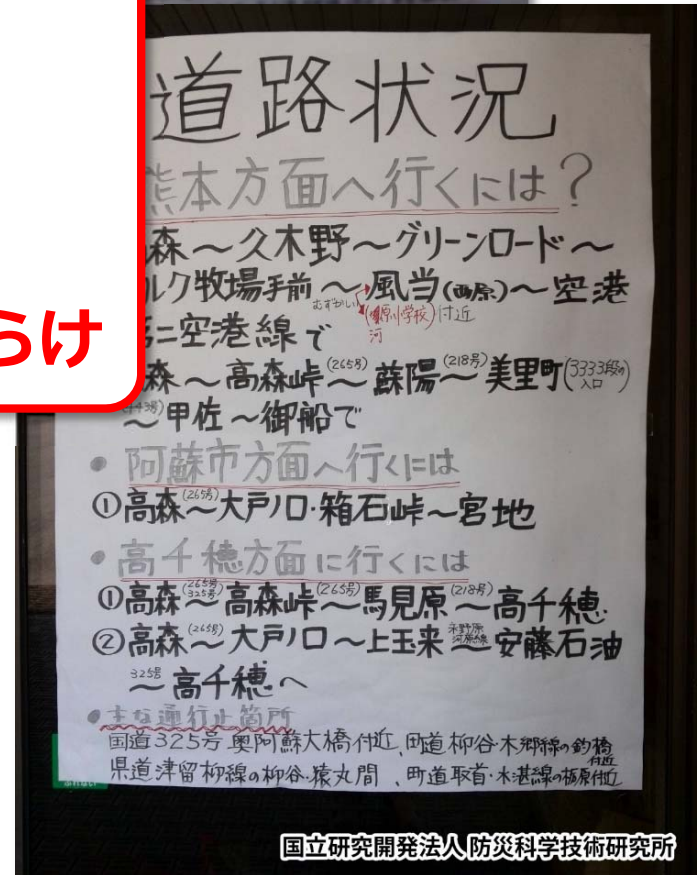 らけ
道路状況
熊本方面へ行くには?
森～久木野～グリーンロード～
ルク牧場手前～風当(西原)～空港
むずかしい
(河原小学校)付近
河
空港線で
森～高森峠～(265号)蘇陽～(218号)美里町(3333段の入口)
～甲佐～御船で
・阿蘇市方面へ行くには
①高森～(265号)大戸ノ口・箱石峠～宮地
・高千穂方面に行くには
①高森～(265号 325号)高森峠～(265号)馬見原～(218号)高千穂
②高森～(265号)大戸ノ口～上玉来～安藤石油
325号
～高千穂へ
・主な通行止箇所
国道325号 奥阿蘇大橋付近、町道柳谷・木郷線の釣橋付近
県道津留柳線の柳谷・猿丸間、町道取首・水湛線の栃原付近
国立研究開発法人防災科学技術研究所